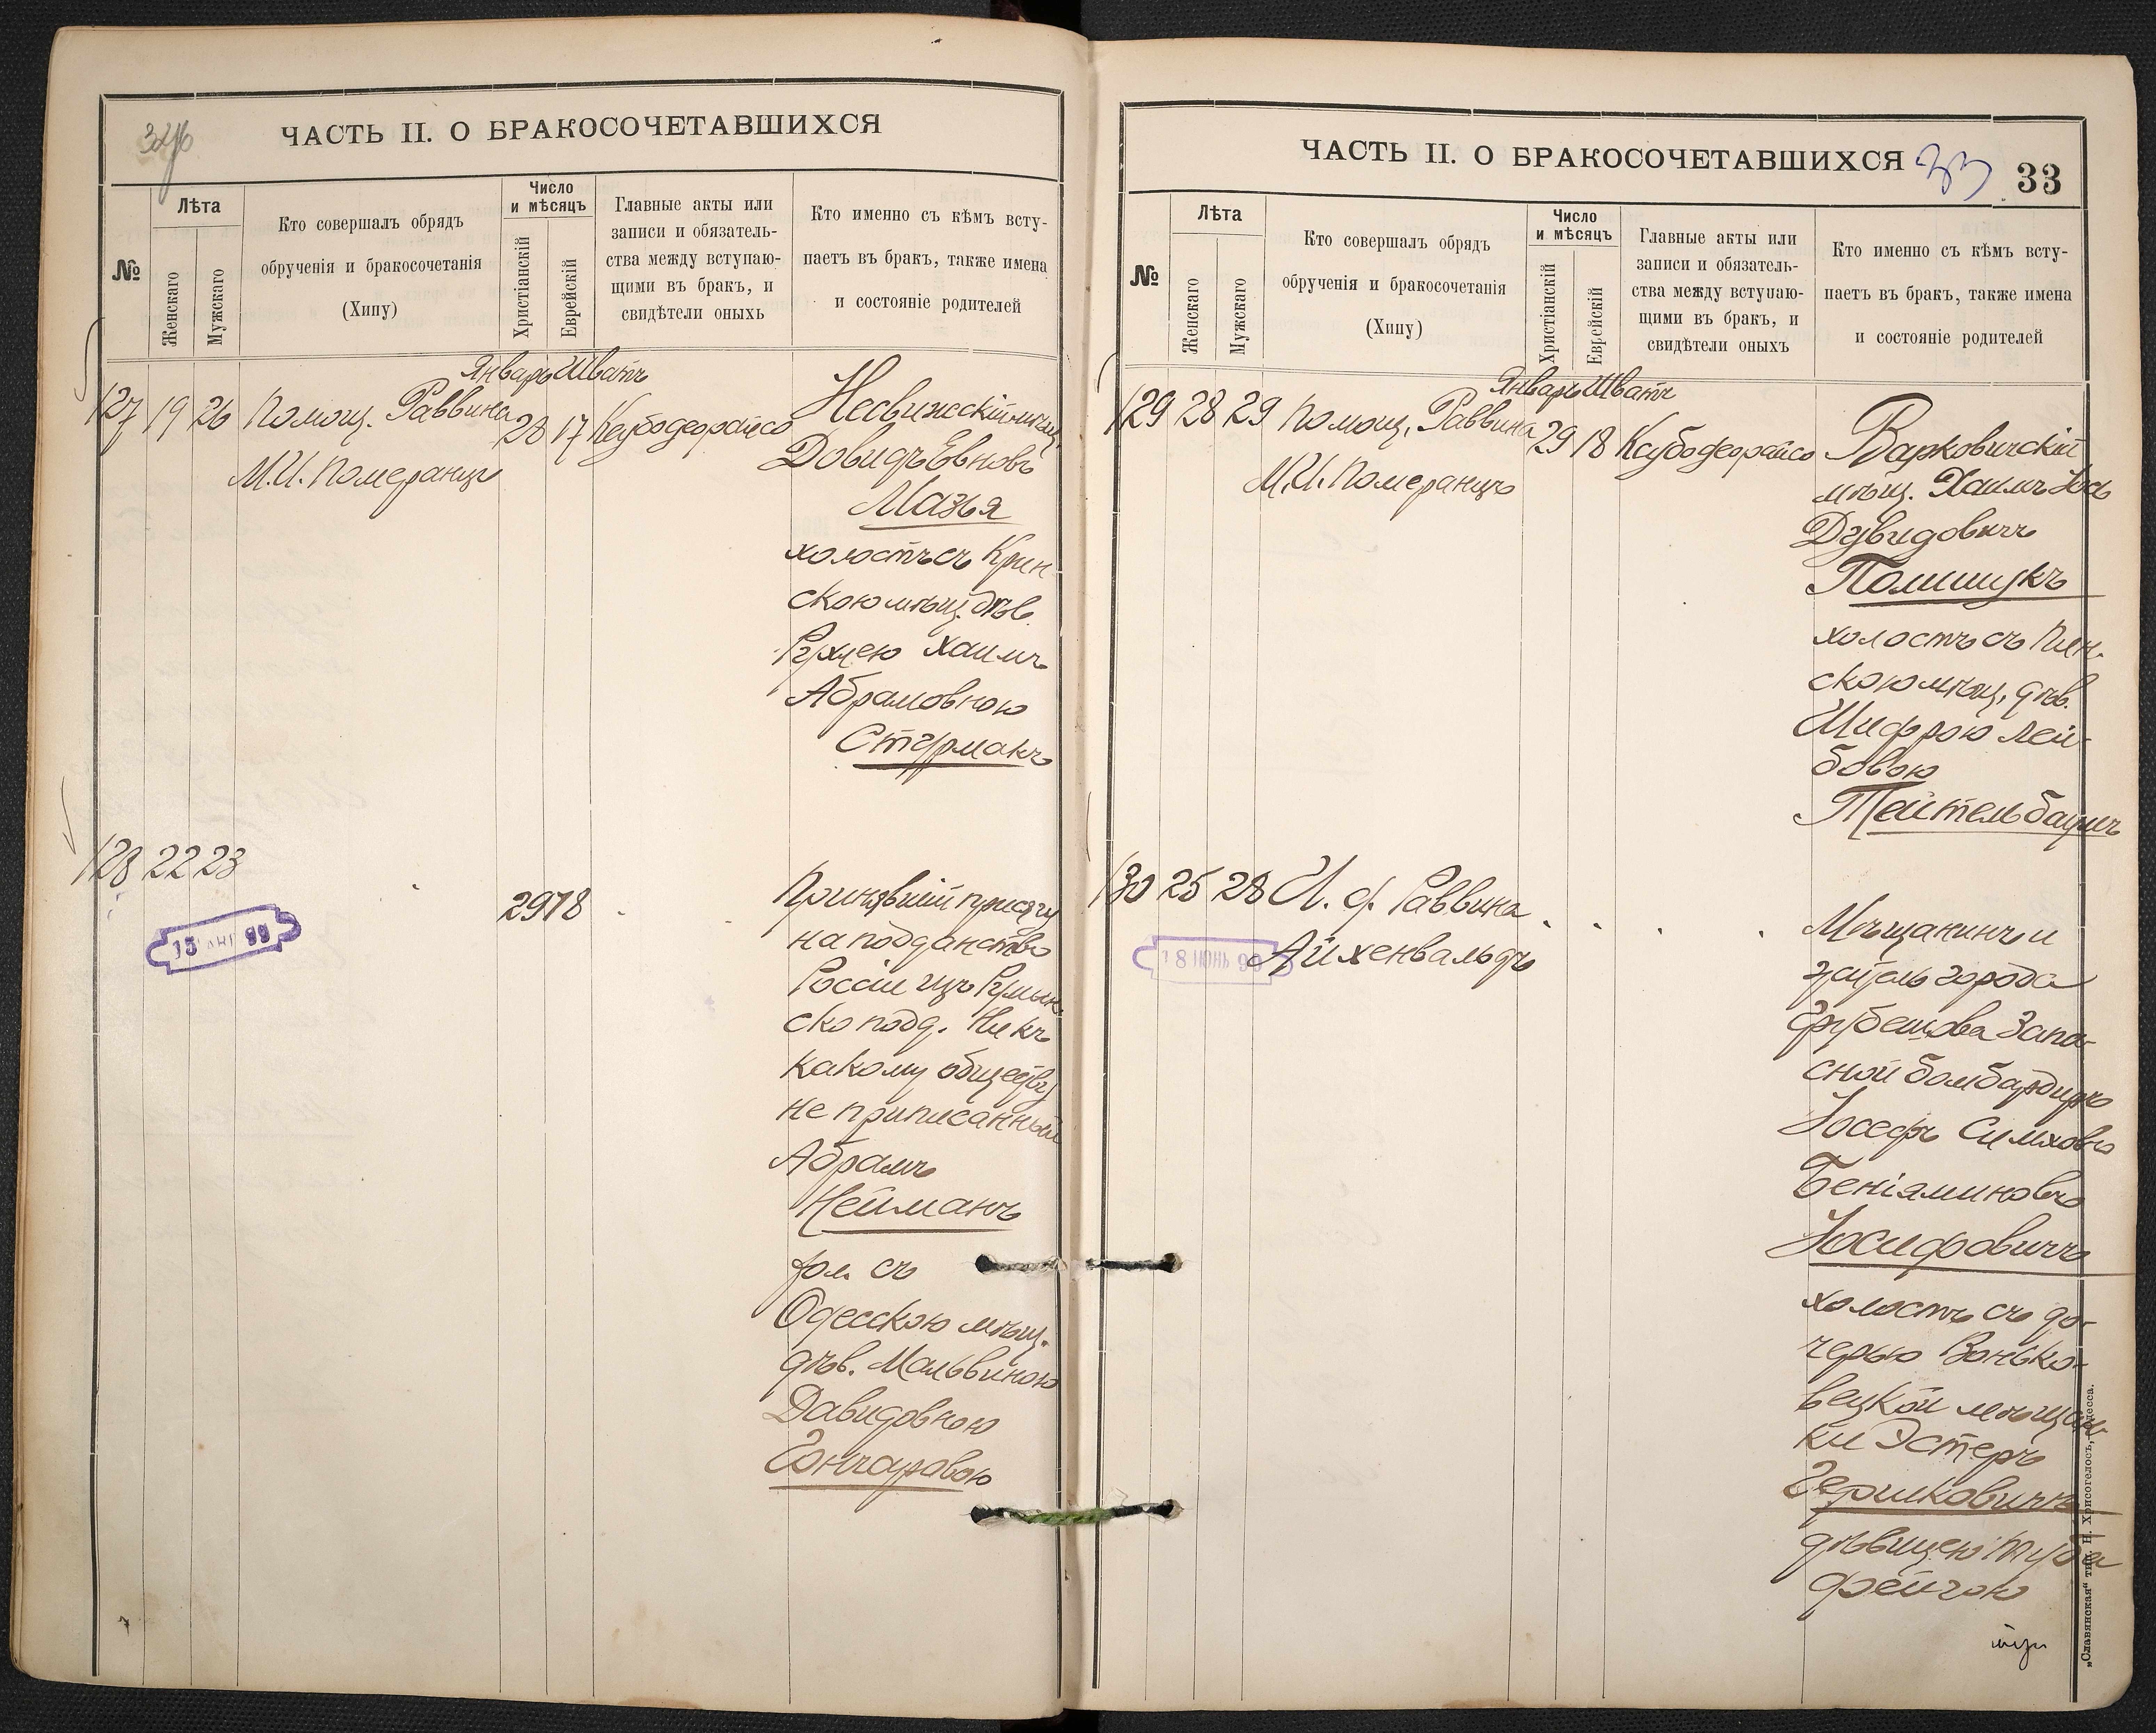 ЧАСТЬ II. О БРАКОСОЧЕТАВШИХСЯ
№
Лѣта
Женскаго
Мужскаго
Кто совершалъ обрядъ
обрученія и бракосочетанія
(Хипу)
Число
и мѣсяцъ
Христіанскій
Еврейскій
Главные акты или
записи и обязатель-
ства между вступаю-
щими въ бракъ, и
свидѣтели оныхъ
Кто именно съ кѣмъ всту-
паетъ въ бракъ, также имена
и состояніе родителей
Январь Шватъ
127 19 26 Помощ. Раввина 28 17
М.И. Померанцъ
Несвижскій мѣщ.
Довидъ Евновъ
Мазья
холостъ съ Крин-
скою мѣщ. дѣв.
Рухлею Хаимъ
Абрамовною
Стурмакъ
128 22 23
29 18
15 99
Принявшій присягу
на подданство
Россіи изъ Румын-
ско подд. Ни къ
какому обществу
не приписанный
Абрамъ
Нейманъ
хол. съ
Одесскою мѣщ.
дѣв. Мальвиною
Давидовною
Гончаровою
ЧАСТЬ II. О БРАКОСОЧЕТАВШИХСЯ 33 33
№
Лѣта
Женскаго
Мужскаго
Кто совершалъ обрядъ
обрученія и бракосочетанія
(Хипу)
Число
и мѣсяцъ
Христіанскій
Еврейскій
Главные акты или
записи и обязатель-
ства между вступаю-
щими въ бракъ, и
свидѣтели оныхъ
Кто именно съ кѣмъ всту-
паетъ въ бракъ, также имена
и состояніе родителей
Январь Шватъ
129 28 29 Помощ. Раввина 29 18
М.И. Померанцъ
Варковичскій
мѣщ. Хаимъ Іось
Дувидовичъ
Полищукъ
холостъ съ Пин-
скою мѣщ. дѣв.
Шифрою Лей-
бовою
Тейтельбаумъ
130 25 28 И. д. Раввина
Айхенвальдъ
18 ІЮН 99
Мѣщанинъ и
житель города
Грубешова Запа-
сной бомбардиръ
Іосефъ Симховъ
Беніяминовъ
Іосифовичъ
холостъ съ до-
черью Вонько-
вецкой мѣщан-
ки Эстеръ
Гершковичъ
дѣвицею Туба
Фейгою
„Славянская“ тип. Н. Хрисогелосъ, Одесса.